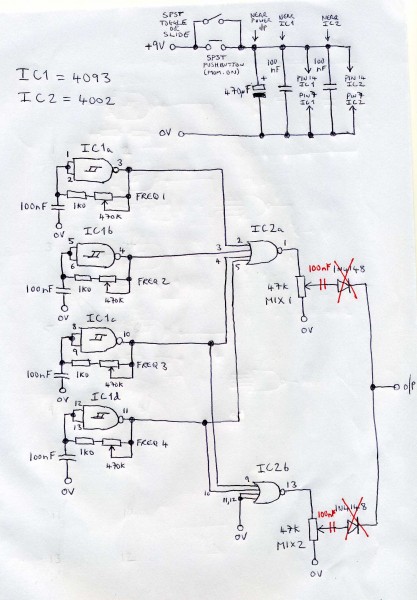 SPST
TOGGLE
OR
SLIDE
+9V
SPST
PUSHBUTTON
(MOM. ON)
NEAR
POWER
I/P
NEAR
IC1
NEAR
IC2
+
470µF
100
nF
PIN 14
IC1
PIN 7
IC1
100
nF
PIN 14
IC2
PIN 7
IC2
0V
IC1 = 4093
IC2 = 4002
IC1a
1
2
3
100nF
1K0
470K
FREQ 1
0V
IC1b
5
6
4
100nF
1K0
470K
FREQ 2
0V
IC1c
8
9
10
100nF
1K0
470K
FREQ 3
0V
IC1d
12
13
11
100nF
1K0
470K
FREQ 4
0V
IC2a
2
3
4
5
1
47K
MIX 1
100nF
1N4148
0V
O/P
IC2b
9
10
11,12
13
0V
47K
MIX 2
100nF
1N4148
0V